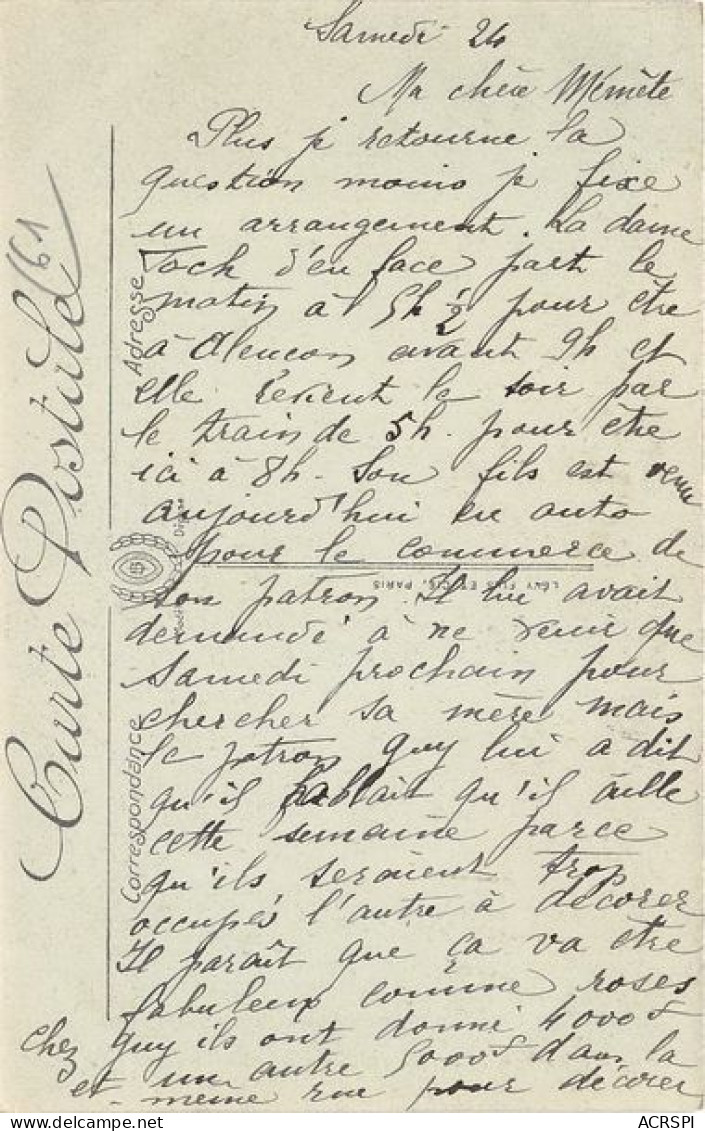 Samedi 24
Ma chère Mémète
Plus je retourne la
question moins je fixe
un arrangement. La dame
Tock d'en face part le
matin à 5h ½ pour être
à Alencon avant 9h et
elle revient le soir par
le train de 5h. pour être
ici à 8h. Son fils est venu
aujourd'hui en auto
pour le commerce de
son patron. Il lui avait
demandé à ne venir que
samedi prochain pour
chercher sa mère mais
le patron Guy lui a dit
qu'il fallait qu'il aille
cette semaine parce
qu'ils seraient trop
occupés l'autre à décorer
Il paraît que ça va être
fabuleux comme roses
chez Guy ils ont donné 4000f
et un autre 5000f dans la
même rue pour décorer
Carte Postale
61
Adresse
Correspondance
LÉVY FILS ET CIE, PARIS
ACRSPI